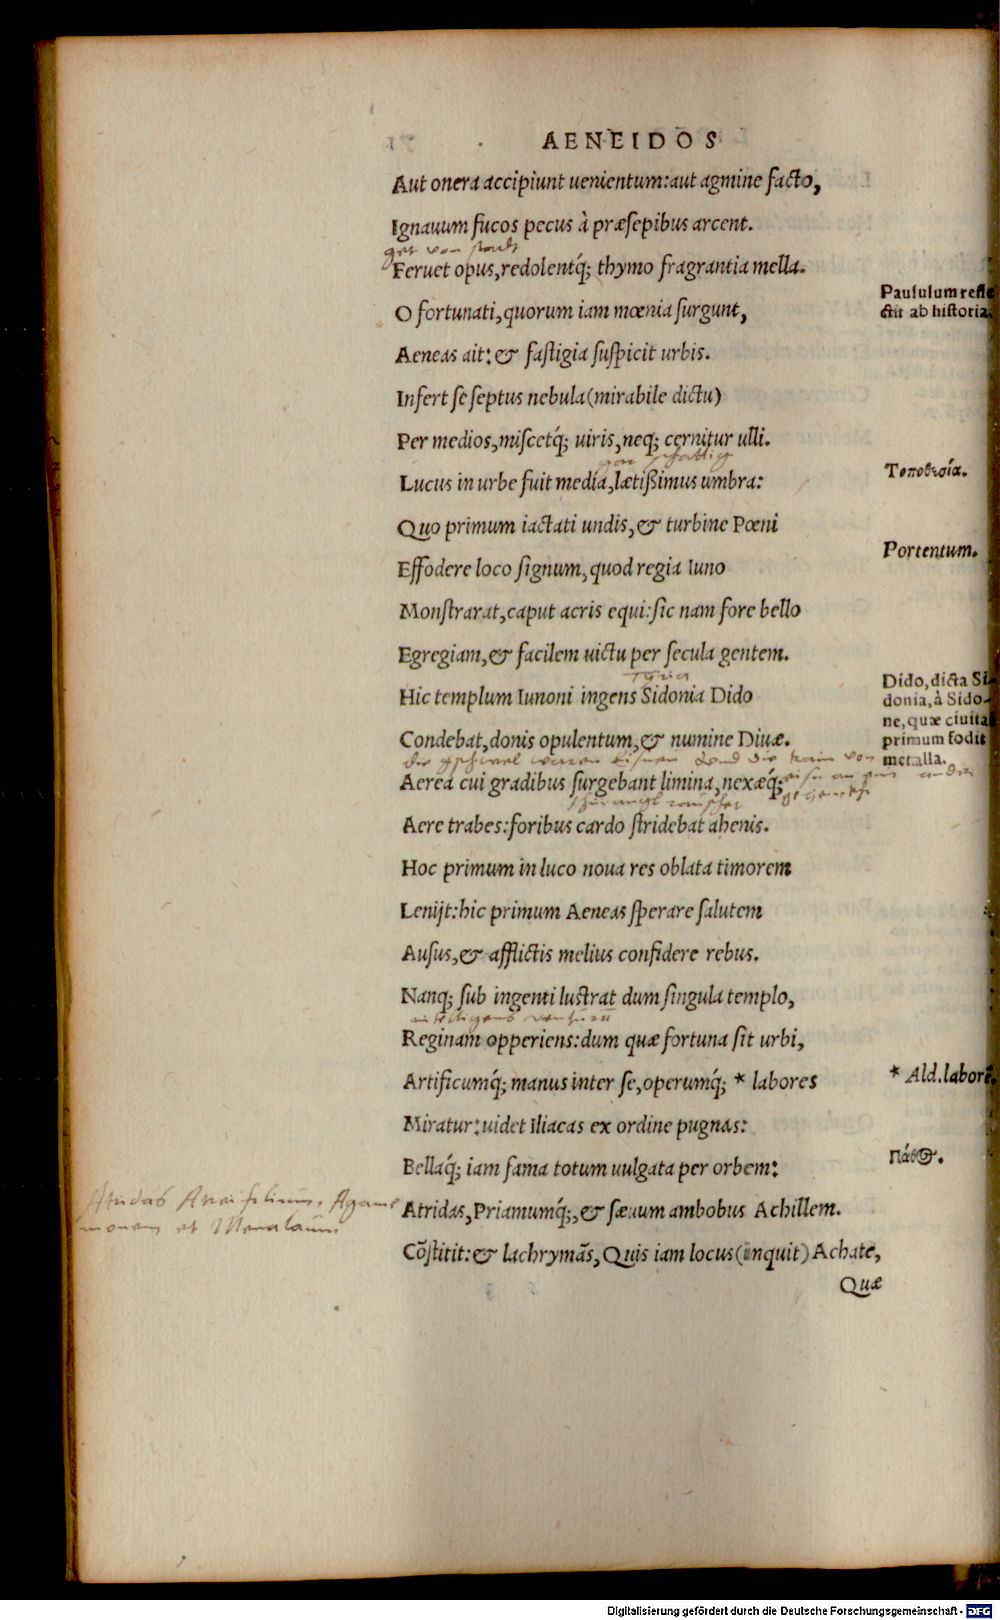 AENEIDOS
Aut onera accipiunt uenientum: aut agmine facto,
Ignauum fucos pecus à præsepibus arcent.
get von stadt
Feruet opus, redolentq́; thymo fragrantia mella.
Paululum refle
ctit ab historia.
O fortunati, quorum iam mœnia surgunt,
Aeneas ait: & fastigia suspicit urbis.
Infert se septus nebula (mirabile dictu)
Per medios, miscetq́; uiris, neq; cernitur ulli.
gar schattig
Τοποθεσία.
Lucus in urbe fuit media, lætißimus umbra:
Quo primum iactati undis, & turbine Pœni
Portentum.
Effodere loco signum, quod regia Iuno
Monstrarat, caput acris equi: sic nam fore bello
Egregiam, & facilem uictu per secula gentem.
Tyria
Dido, dicta Si-
donia, à Sido-
ne, quæ ciuita
primum fodit
metalla.
Hic templum Iunoni ingens Sidonia Dido
Condebat, donis opulentum, & numine Diuæ.
die gschwel waren eisnen vnd die von
Aerea cui gradibus surgebant limina, nexæq́;
an ein ander
Aere trabes: foribus cardo stridebat ahenis.
Hoc primum in luco noua res oblata timorem
Lenijt: hic primum Aeneas sperare salutem
Ausus, & afflictis melius confidere rebus.
Nanq; sub ingenti lustrat dum singula templo,
Reginam opperiens: dum quæ fortuna sit urbi,
Artificumq́; manus inter se, operumq́; * labores
* Ald. laborē.
Miratur: uidet Iliacas ex ordine pugnas:
Πάθος.
Bellaq́; iam fama totum uulgata per orbem:
Atridas Atrei filium, Agame
monem et Menalaum
Atridas, Priamumq́;, & sæuum ambobus Achillem.
Cōstitit: & lachrymās, Quis iam locus (inquit) Achate,
Quæ
Digitalisierung gefördert durch die Deutsche Forschungsgemeinschaft - DFG